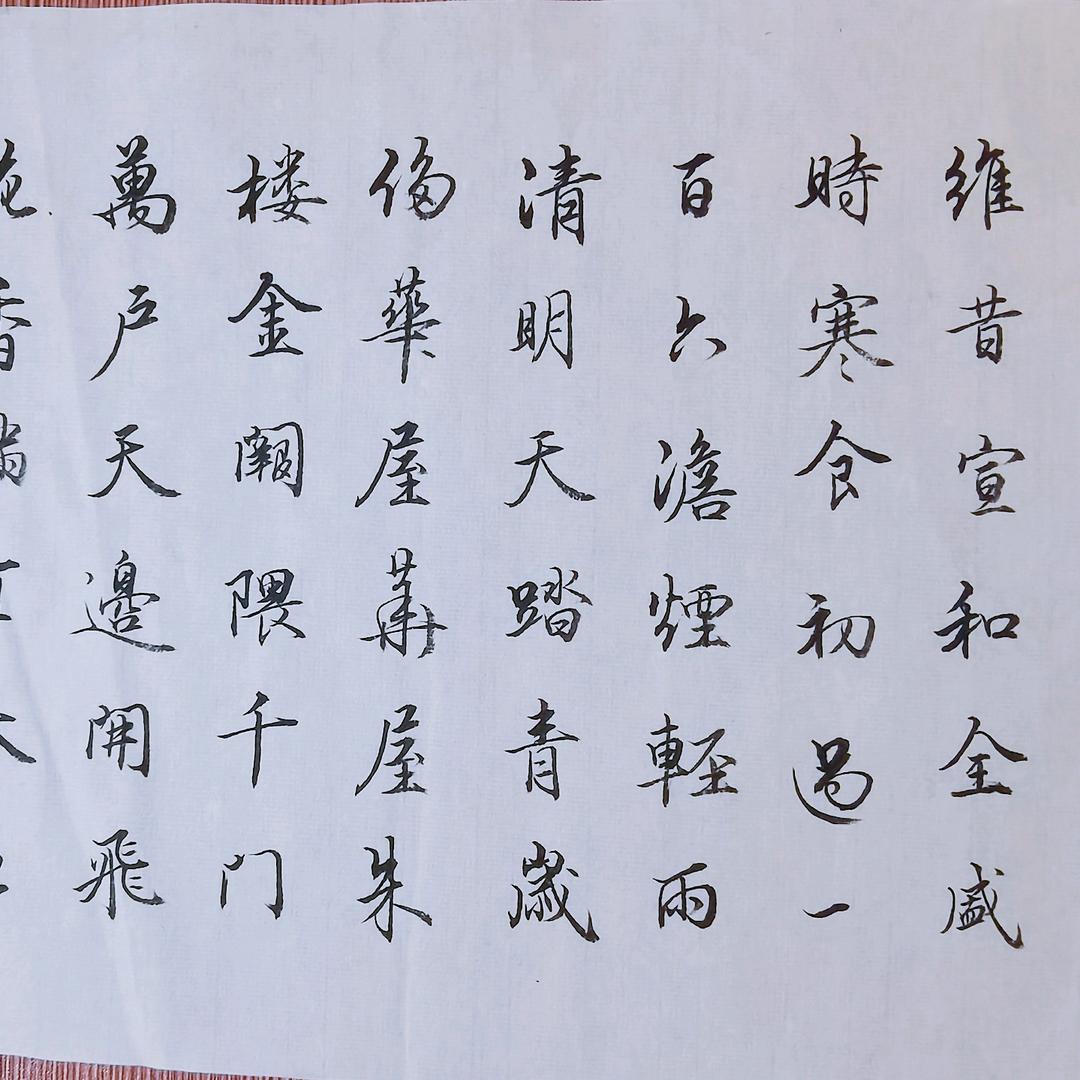 維昔宣和全盛
時寒食初過一
百六澹煙輕雨
清明天踏青歲
侈華屋冓屋朱
楼金闕隈千门
萬户天邊開飛